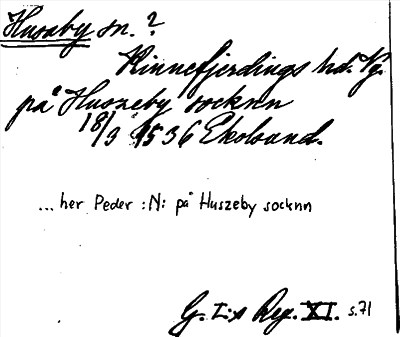 Husaby sn. ?
Kinnefjerdings hd. Vg.
på Huszeby socknn
18/9 1536 Ekolsund.
... her Peder :N: på Huszeby socknn
G. I:s Reg. XI. s.71